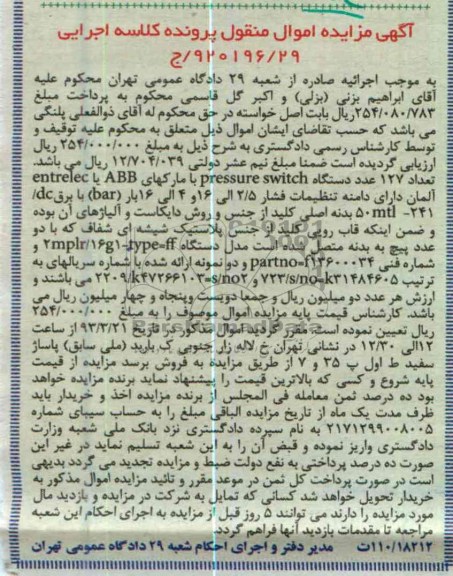 آگهی مزایده اموال منقول پرونده کلاسه اجرایی
۹۲۰۱۹۶/۲۹/ج
به موجب اجرائیه صادره از شعبه ۲۹ دادگاه عمومی تهران محکوم علیه
آقای ابراهیم بزنی (بزلی) و اکبر گل قاسمی محکوم به پرداخت مبلغ
۲۵۴/۰۸۰/۷۸۳ریال بابت اصل خواسته در حق محکوم له آقای ذوالفعلی پلنگی
می باشد که حسب تقاضای ایشان اموال ذیل متعلق به محکوم علیه توقیف و
توسط کارشناس رسمی دادگستری به شرح ذیل به مبلغ ۲۵۴/۰۰۰/۰۰۰ ریال
ارزیابی گردیده است ضمنا مبلغ نیم عشر دولتی ۱۲/۷۰۴/۰۳۹ ریال می باشد.
تعداد ۱۲۷ عدد دستگاه pressure switch با مارکهای ABB یا entrelec
آلمان دارای دامنه تنظیمات فشار ۲/۵ الی ۱۶و ۴ الی ۱۶بار (bar) با برق dc/
۲۴۱- ۵۰mtl بدنه اصلی کلید از جنس و روش دایکاست و آلیاژهای آن بوده
و ضمن اینکه قاب رویی کلید از جنس پلاستیک شیشه ای شفاف که با دو
عدد پیچ به بدنه متصل شده است مدل دستگاه ۲mplr/۱۶g۱-type=ff و
شماره فنی partno=f۱۳۶۰۰۰۳۴ و دو نمونه ارائه شده با شماره سریالهای به
ترتیب ۷۲۳/s/no=k۳۱۴۸۴۶۰۵ و ۲۲۰۹/k۴۷۲۶۶۱۰۳=s/nov می باشند و
ارزش هر عدد دو میلیون ریال و جمعا دویست وپنجاه و چهار میلیون ریال می
باشد. کارشناس قیمت پایه مزایده اموال موصوف را به مبلغ ۲۵۴/۰۰۰/۰۰۰
ریال تعیین نموده است مقرر گردید اموال مذکور در تاریخ ۹۳/۳/۲۱ از ساعت
۱۲الی ۱۲/۳۰ در نشانی تهران خ لاله زار جنوبی ک باربد (ملی سابق) پاساژ
سفید ط اول پ ۳۵ و ۷ از طریق مزایده به فروش برسد مزایده از قیمت
پایه شروع و کسی که بالاترین قیمت را پیشنهاد نماید برنده مزایده خواهد
بود ده درصد ثمن معامله فی المجلس از برنده مزایده اخذ و خریدار باید
ظرف مدت یک ماه از تاریخ مزایده الباقی مبلغ را به حساب سیبای شماره
۲۱۷۱۲۹۹۰۰۸۰۰۵ به نام سپرده دادگستری نزد بانک ملی شعبه وزارت
دادگستری واریز نموده و قبض آن را به این شعبه تسلیم نماید در غیر این
صورت ده درصد پرداختی به نفع دولت ضبط و مزایده تجدید می گردد بدیهی
است در صورت پرداخت کل ثمن در موعد مقرر و تائید مزایده اموال مذکور به
خریدار تحویل خواهد شد کسانی که تمایل به شرکت در مزایده و بازدید مال
مورد مزایده را دارند می توانند ۵ روز قبل از مزایده به اجرای احکام این شعبه
مراجعه تا مقدمات بازدید آنها فراهم گردد.
۱۱۰/۱۸۲۱۲ت مدیر دفتر و اجرای احکام شعبه ۲۹ دادگاه عمومی تهران